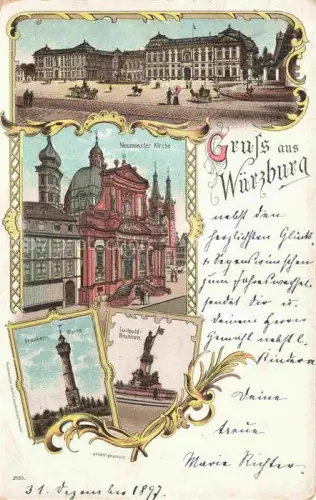 Neumünster Kirche
Gruss aus
Würzburg
nebst den
herzlichsten Glück-
u. Segenswünschen
zum Jahreswechsel
sendet Dir u.
deinem Herrn
Gemahl nebst l.
Kindern
Franken-Warte
Luitpold-
Brunnen
Deine
treue
Marie Richter
2133.
31. Dezember 1897.